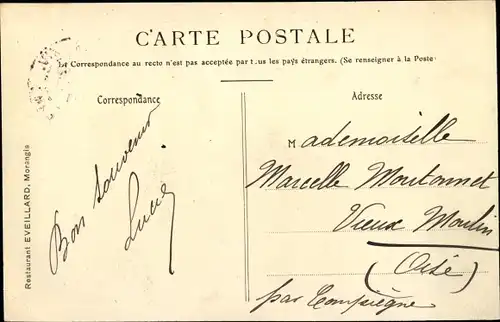 CARTE POSTALE
La Correspondance au recto n'est pas acceptée par t.us les pays étrangers. (Se renseigner à la Poste
Correspondance
Adresse
Restaurant EVEILLARD, Morangis
Bon souvenir
Lucie
Mademoiselle
Marcelle Moutonnet
Vieux Moulin
(Oise)
par Compiègne